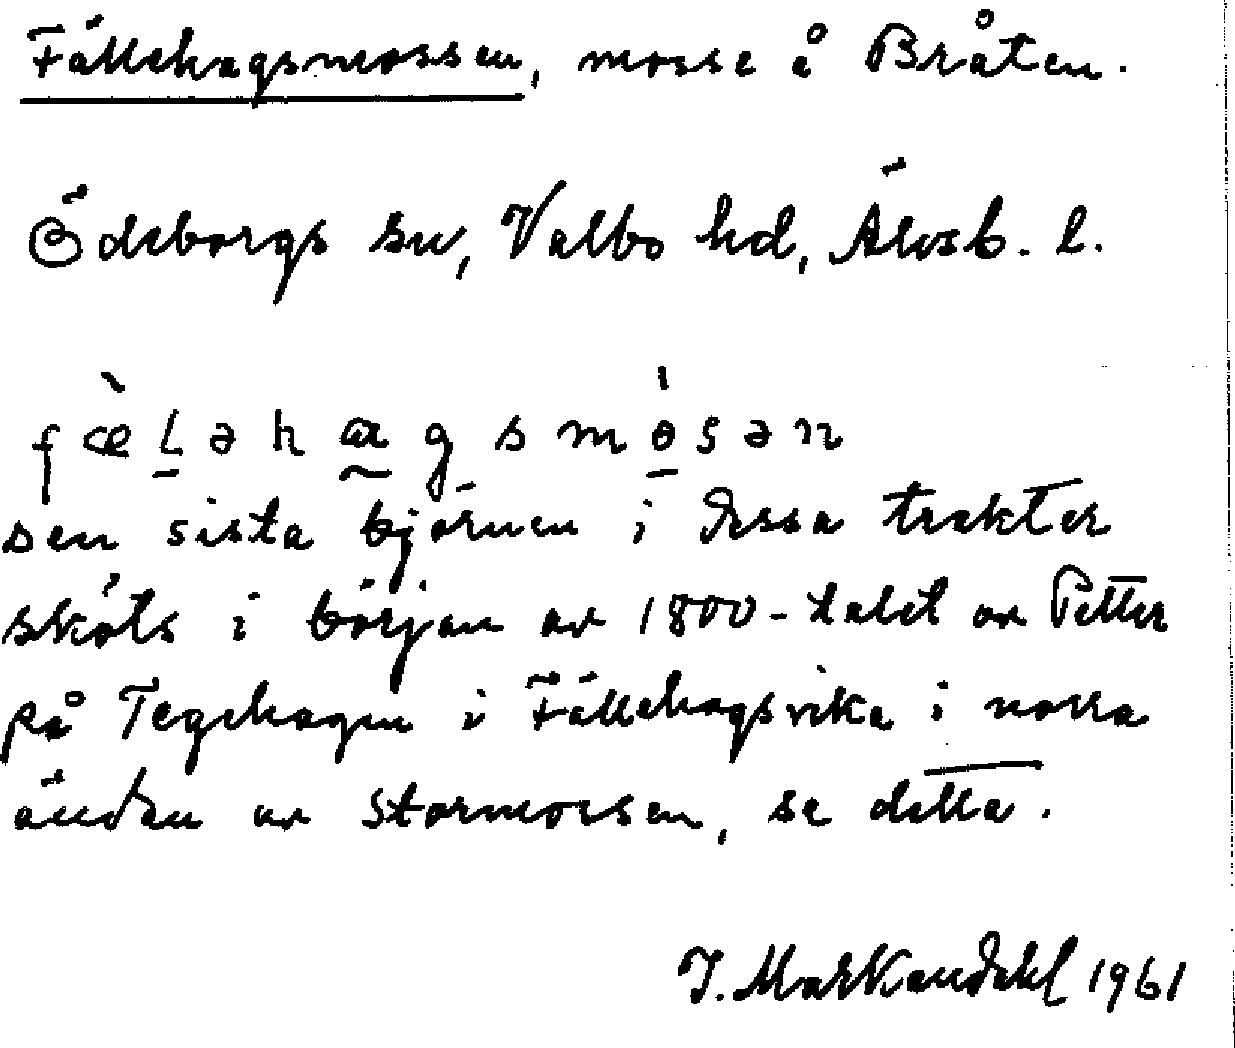 Fällehagsmossen, mosse å Bråten.
Ödeborgs sn, Valbo hd, Älvsb. l.
fæ̀lləhagsmòsən
den sista björnen i dessa trakter
sköts i början av 1800-talet av Petter
på Tegehagen i Fällehagsvika i norra
ändan av Stormossen, se detta.
J. Markendahl 1961